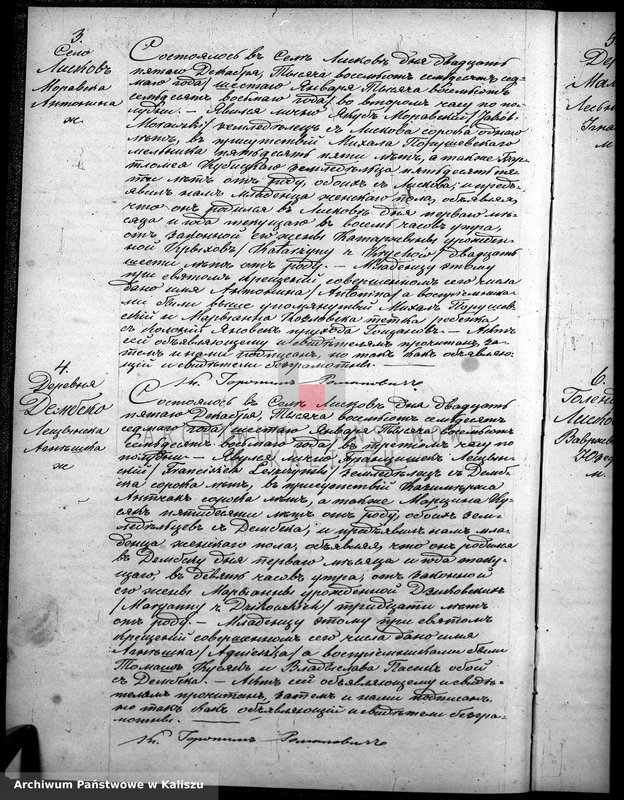 3.
Село
Лисковъ
Моравска
Антонина
ж.
Состоялось въ Селѣ Лисковъ дня двадцать
пятаго Декабря, Тысяча восемьсотъ семдесятъ сед-
маго года / шестаго Января Тысяча восемьсотъ
семдесятъ восьмаго года / во второмъ часу по по-
лудни. — Явился лично Якубъ Моравскій / Jakób
Morawski / земледѣлецъ съ Лискова сорока одного
лѣтъ, въ присутствіи Михала
мельника пятидесять пяти лѣтъ, а также Вар-
тломея Кубицкаго земледѣльца пятидесять пя-
ти лѣтъ отъ роду, обоихъ съ Лискова; и предъ-
явилъ намъ младенца женскаго пола, объявляя,
что онъ родился въ Лисковѣ дня перваго мѣ-
сяца и года текущаго въ восемь часовъ утра,
отъ законной его жены Катаржины урожден-
ной / Katarzyny z / двадцать
шести лѣтъ отъ роду. — Младенцу этому
при святомъ крещеніи совершенномъ сего числа
дано имя Антонина / Antonina / а воспріемника-
ми были выше упомянутый Михалъ
и Марьянна Козловска
съ прихода — Актъ
сей объявляющему и свидѣтелямъ прочитанъ, за-
темъ и нами подписанъ, но такъ какъ объявляю-
щій и свидѣтели безграмотны.
Кс. Геронимъ Романовичъ
4.
Деревня
Дембско
Лещинска
Агнѣшка
ж
Состоялось въ Селѣ Лисковъ дня двадцать
пятаго Декабря, Тысяча восемьсотъ семдесятъ
седмаго года / шестаго Января Тысяча восемьсотъ
семдесятъ восьмаго года / въ третьемъ часу по
полудни. — Явился лично Францишекъ Лещин-
скій / Franciszek Leszczyński / земледѣлецъ съ Демб-
ска сорока лѣтъ, въ присутствіи Казимержа
Антчака сорока лѣтъ, а также Марцина Ку-
сякъ пятидесяти лѣтъ отъ роду, обоихъ зем-
ледѣльцевъ съ Дембска; и предъявилъ намъ мла-
денца женскаго пола, объявляя, что онъ родился
въ Дембску дня перваго мѣсяца и года теку-
щаго, въ девять часовъ утра, отъ законной
его жены Марьянны урожденной
/ Maryanny z / тридцати лѣтъ
отъ роду. — Младенцу этому при святомъ
крещеніи совершенномъ сего числа дано имя
Агнѣшка / Agnieszka / а воспріемниками были
Томашъ Кусякъ и Владыслава обои
съ Дембска. — Актъ сей объявляющему и свидѣ-
телямъ прочитанъ, затемъ и нами подписанъ,
но такъ какъ объявляющій и свидѣтели безгра-
мотны.
Кс. Геронимъ Романовичъ
5.
6.
м.
Archiwum Państwowe w Kaliszu